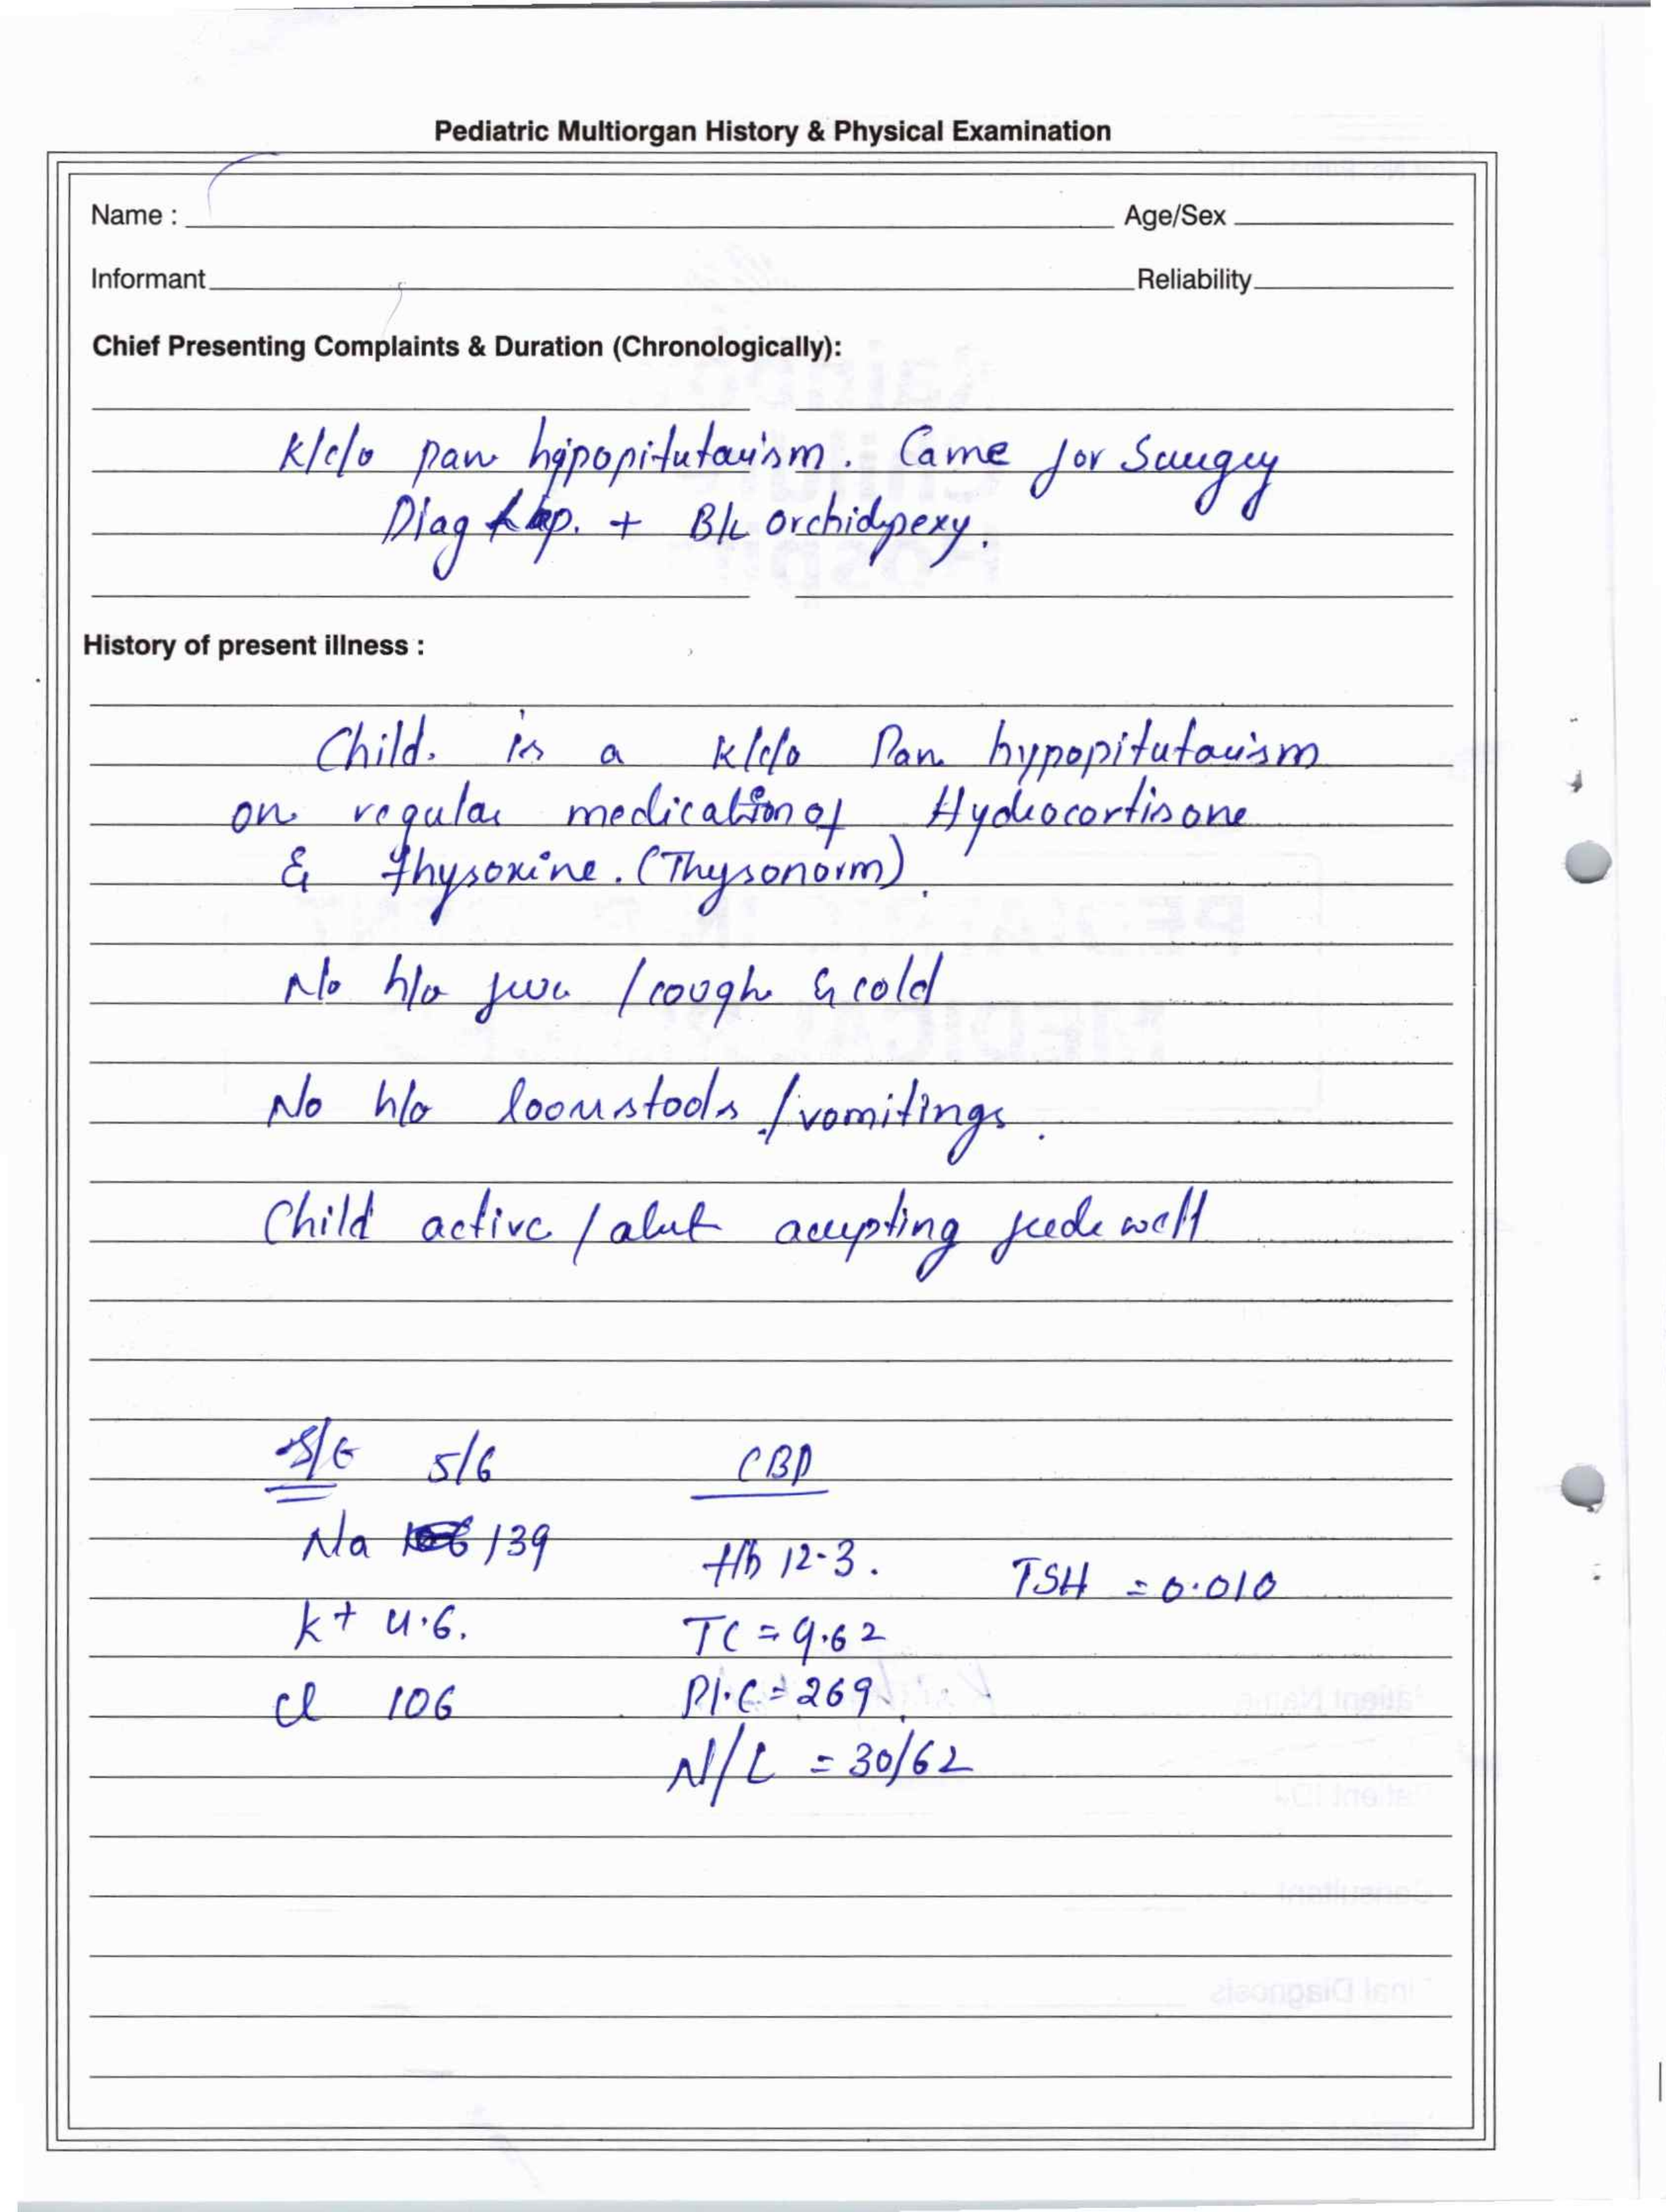 Pediatric Multiorgan History & Physical Examination
Name : Age/Sex
Informant Reliability
Chief Presenting Complaints & Duration (Chronologically):
K/c/o pan hypopitutarism. Came for Surgery
Diag Lap. + B/L orchidpexy.
History of present illness :
Child. is a K/c/o Pan hypopitutarism
on regular medication of Hydrocortisone
& thyroxine. (Thyronorm).
No h/o fever / cough & cold
No h/o loosestools / vomitings.
Child active / alert accepting feeds well
S/E 5/6 CBP
Na 139 Hb 12.3. TSH = 0.010
K+ 4.6. TC = 9.62
Cl 106 Pl.C = 269
N/L = 30/62